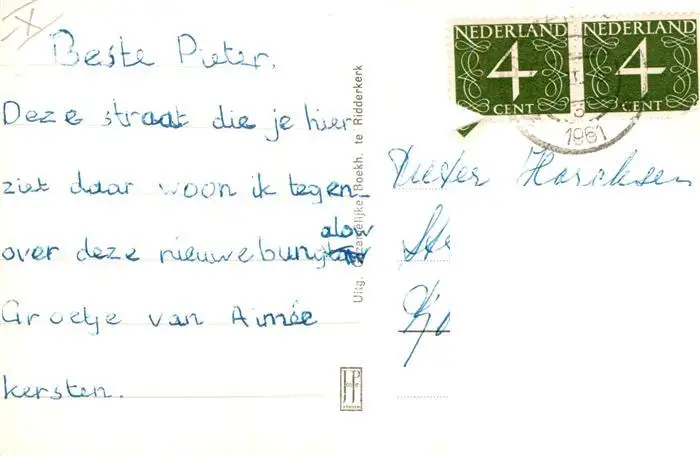 Beste Pieter.
Deze straat die je hier
ziet daar woon ik tegen-
over deze nieuwe bungalow
Groetje van Aimée
kersten.
Uitg. Gezamelijke Boekh. te Ridderkerk
NEDERLAND NEDERLAND
4 4
CENT CENT
1961
Pieter